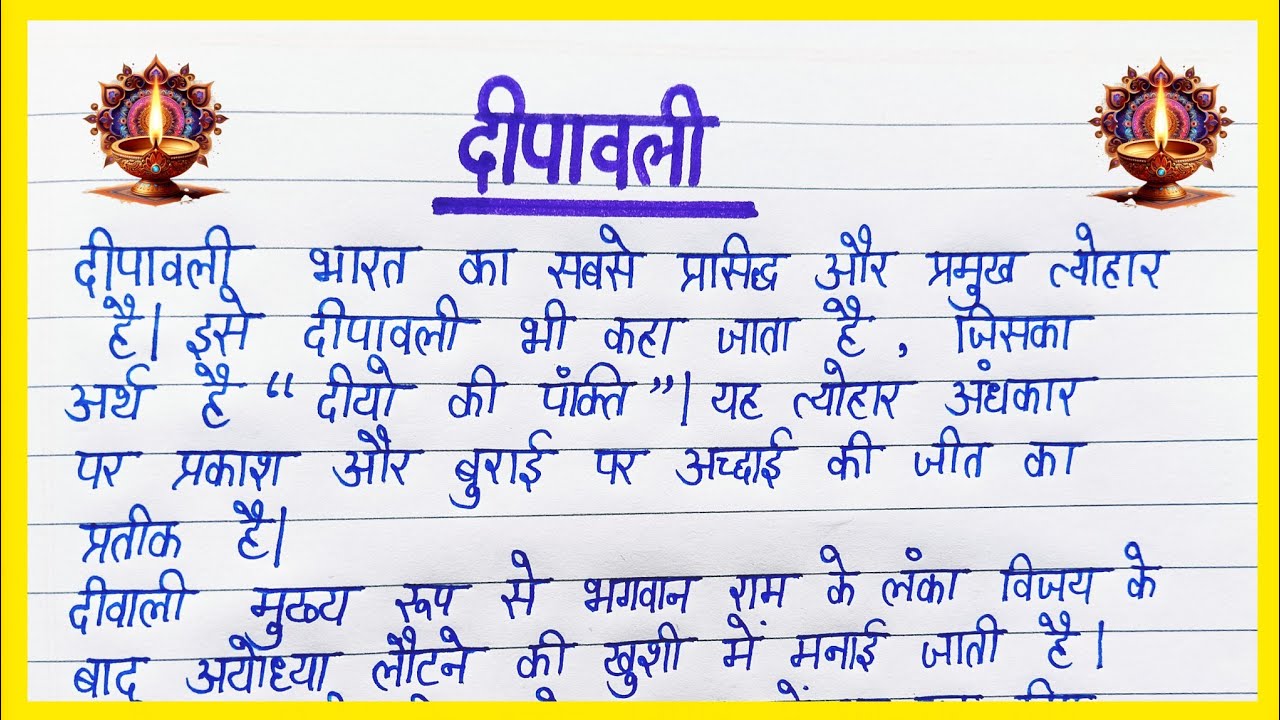 दीपावली
दीपावली भारत का सबसे प्रासिद्ध और प्रमुख त्योहार
है। इसे दीपावली भी कहा जाता है , जिसका
अर्थ है “ दीयो की पंक्ति ”। यह त्योहार अंधकार
पर प्रकाश और बुराई पर अच्छाई की जीत का
प्रतीक है।
दीवाली मुख्य रूप से भगवान राम के लंका विजय के
बाद अयोध्या लौटने की खुशी में मनाई जाती है।